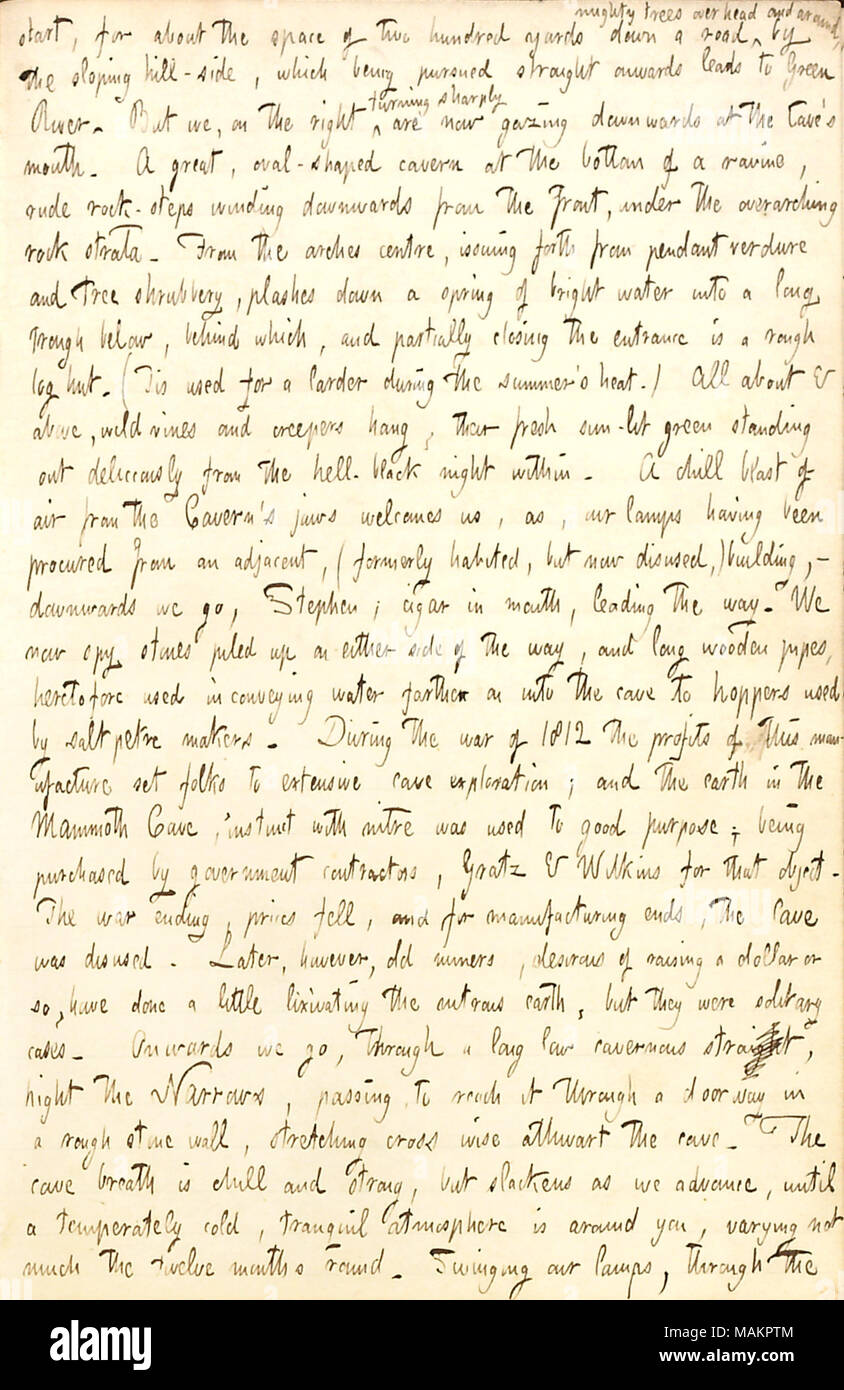 mighty trees over head and around,
start, for about the space of two hundred yards down a road, by
the sloping hill-side, which being pursued straight onwards leads to Green
River. But we, on the right turning sharply are now gazing downwards at the Cave's
mouth. A great, oval-shaped cavern at the bottom of a ravine,
rude rock-steps winding downwards from the front, under the overarching
rock strata. From the arches centre, issuing forth from pendant verdure
and tree shrubbery, plashes down a spring of bright water into a long
trough below, behind which, and partially closing the entrance is a rough
log hut. (Tis used for a larder during the summer's heat.) All about &
above, wild vines and creepers hang, their fresh sun-lit green standing
out deliciously from the hell-black night within. A chill blast of
air from the Cavern's jaws welcomes us, as, our lamps having been
procured from an adjacent, (formerly habited, but now disused,) building, -
downwards we go, Stephen, cigar in mouth, leading the way. We
now spy stones piled up on either side of the way, and long wooden pipes,
heretofore used in conveying water farther on into the cave to hoppers used
by saltpetre makers. During the war of 1812 the profits of this man-
ufacture set folks to extensive cave exploration; and the earth in the
Mammoth Cave, instinct with nitre was used to good purpose; being
purchased by government contractors, Gratz & Wilkins for that object.
The war ending, prices fell, and for manufacturing ends, the Cave
was disused. Later, however, old miners, desirous of raising a dollar or
so, have done a little lixiviating the nitrous earth, but they were solitary
cases. Onwards we go, through a long low cavernous strait,
hight the Narrows, passing to reach it through a doorway in
a rough stone wall, stretching cross wise athwart the cave. The
cave breath is chill and strong, but slackens as we advance, until
a temperately cold, tranquil atmosphere is around you, varying not
much the twelve months round. Swinging our lamps, through the
alamy
Image ID: MAKPTM
www.alamy.com